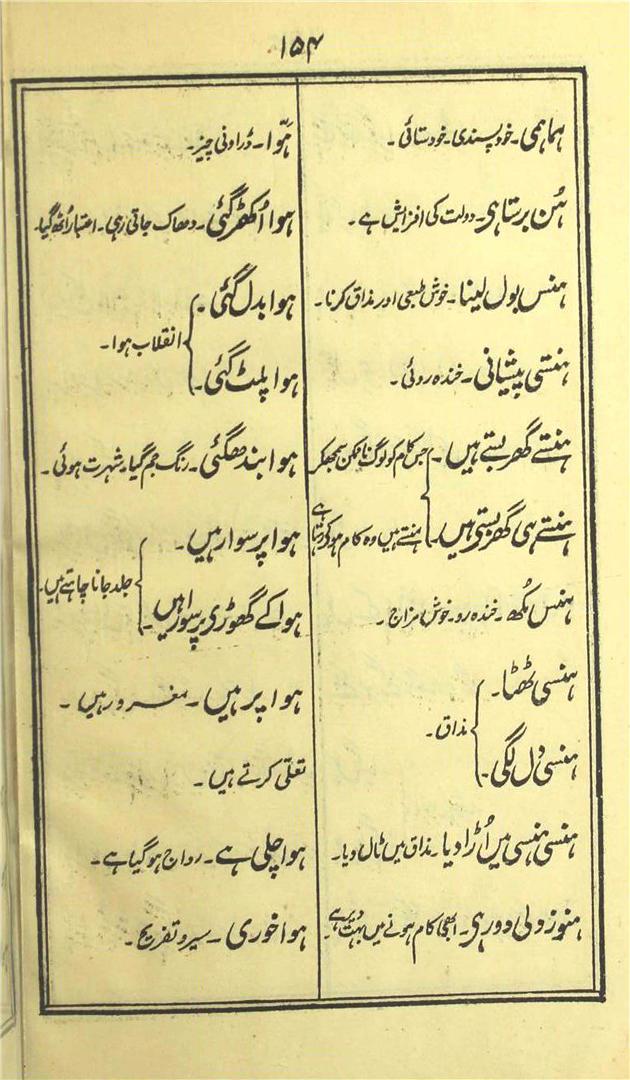 ۱۵۴
ہماہمی۔ خود پسندی۔ خودستائی۔
ہُن برستا ہی۔ دولت کی افزایش ہے۔
ہنس بول لینا۔ خوش طبعی اور مذاق کرنا۔
ہنستی پیشانی۔ خندہ روئی۔
ہنستے گھر بستے ہیں۔ جس کام کو لوگ ناممکن سمجھکر
ہنستے ہی گھر بستی ہیں۔ ہنستے ہیں وہ کام ہو کر رہتا ہے
ہنس مُکھ۔ خندہ رو۔ خوش مزاج۔
ہنسی ٹھٹا۔
مذاق۔
ہنسی دل لگی۔
ہنسی ہنسی میں اُڑا دیا۔ مذاق میں ٹال دیا۔
ہنوز دلی دور ہی۔ ابھی کام ہونے میں بہت دیر ہے۔
ہَوّا۔ ڈراونی چیز۔
ہوا اُکھڑ گئی۔ دھاک جاتی رہی۔ اعتبار اُٹھ گیا۔
ہوا بدل گئی۔
انقلاب ہوا۔
ہوا پلٹ گئی۔
ہوا بندھ گئی۔ رنگ جم گیا۔ شہرت ہوئی۔
ہوا پر سوار ہیں۔
جلد جانا چاہتے ہیں۔
ہوا کے گھوڑی پر سوار ہیں۔
ہوا پر ہیں۔ مغرور ہیں۔
تعلّی کرتے ہیں۔
ہوا چلی ہے۔ رواج ہو گیا ہے۔
ہوا خوری۔ سیر و تفریح۔